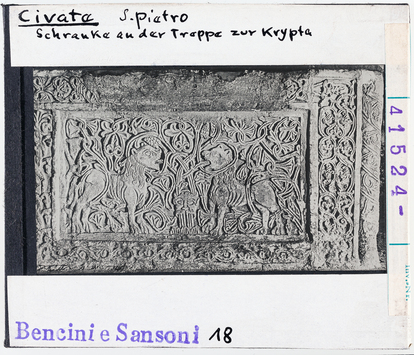 Civate S. Pietro
Schranke an der Treppe zur Krypta
41524-
Bencini e Sansoni 18